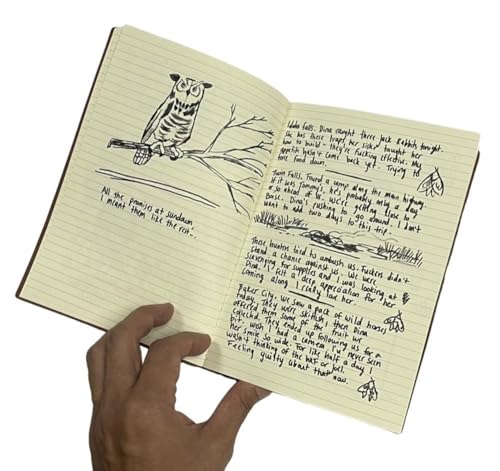 All the promises at sundown
I meant them like the rest..
Idaho Falls. Dina caught three Jack Rabbits tonight.
She has these traps her sister taught her
how to build - they're fucking effective. My
appetite hasn't come back yet. Trying to
force food down
Twin Falls. Found a camp along the main highway
If it was Tommy's, he's probably only a day
or so ahead of us. We're getting close to
Boise. Dina's rushing to go around. I don't
want to add two days to this trip.
These hunters tried to ambush us. Fuckers didn't
stand a chance against us. We were
scavenging for supplies and I was looking at
Dina. I felt a deep appreciation for her
coming along. I really love her.
Baker City. We saw a pack of wild horses
today. They were skittish then Dina
offered them some of the fruit we
collected. They ended up following us for a
bit. I wish I had a camera. I'd never seen
her smile so wide. For like half a day I
wasn't thinking of the WLF or Joel.
Feeling guilty about that now.